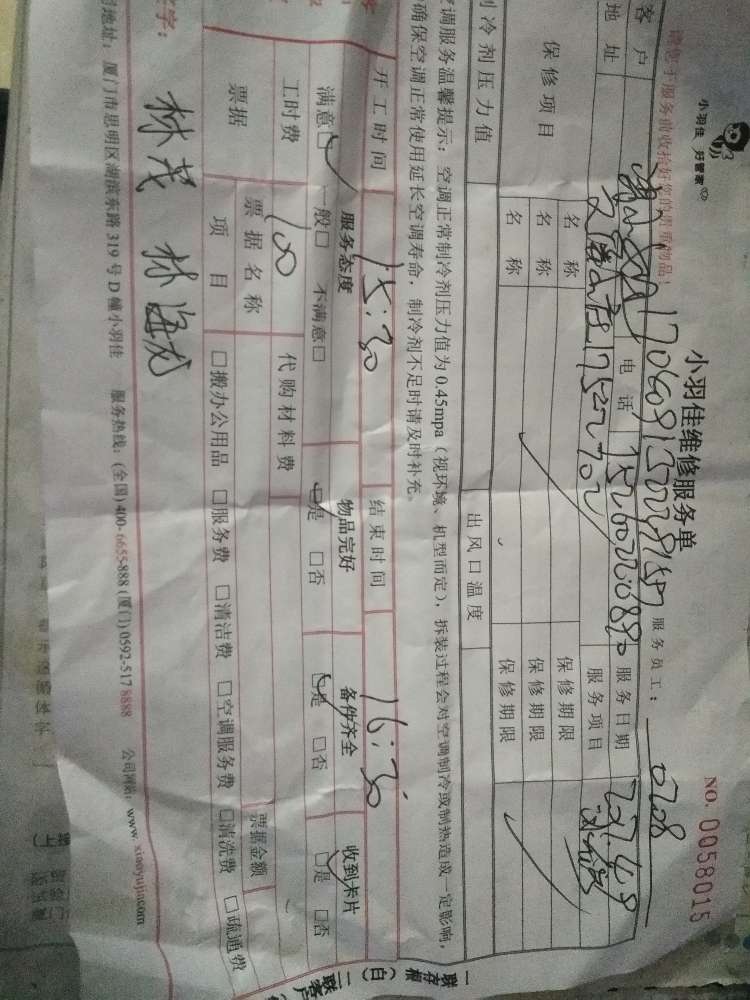 小羽佳 好管家
小羽佳维修服务单
NO. 0058015
请您于服务前收拾好您的贵重物品！
服务员工： 0708
客户 电话 15200220890 服务日期
地址 服务项目
保修项目 名称 保修期限
名称 保修期限
名称 保修期限
制冷剂压力值 出风口温度
空调服务温馨提示：空调正常制冷剂压力值为0.45mpa（视环境、机型而定），拆装过程会对空调制冷或制热造成一定影响，
确保空调正常使用延长空调寿命，制冷剂不足时请及时补充。
开工时间 15:30 结束时间 16:30
服务态度 物品完好 备件齐全 收到卡片
满意□ 一般□ 不满意□ □是 □否 □是 □否 □是 □否
工时费 100 代购材料费
票据 票据名称 票据金额
项目 □搬办公用品 □服务费 □清洁费 □空调服务费 □清洗费 □疏通费
签字： 林茂 林海龙
地址：厦门市思明区湖滨东路319号D幢小羽佳 服务热线：(全国)400-6655-888 (厦门)0592-5178888 公司网站：www.xiaoyujia.com
一联存根（白）二联客户